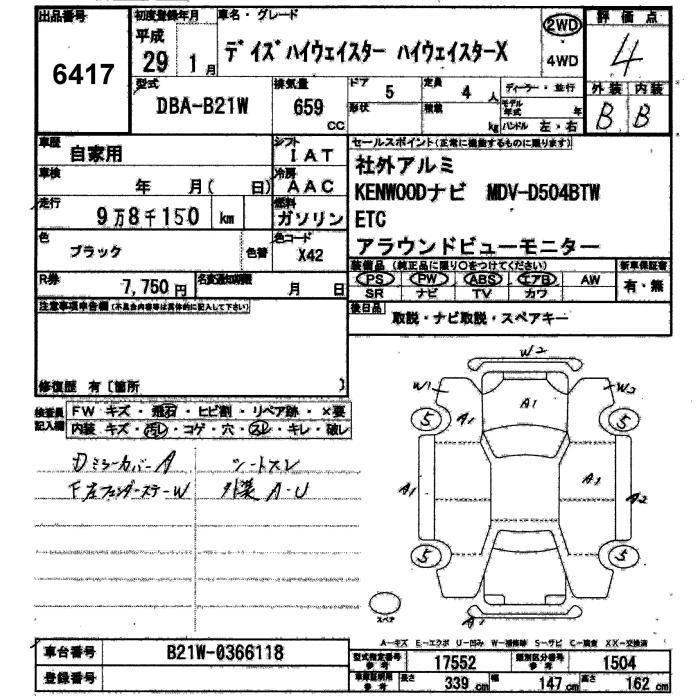 出品番号
6417
初度登録年月
平成
29 1月
車名・グレード
デイズハイウェイスター ハイウェイスターX
2WD
4WD
評価点
4
外装 内装
B B
型式
DBA-B21W
排気量
659
CC
ドア
5
形状
定員
4 人
積載
kg
ディーラー・並行
モデル年式 年
ハンドル 左・右
車歴
自家用
シフト
IAT
車検
年 月( 日)
冷房
AAC
走行
9万8千150 km
燃料
ガソリン
色
ブラック
色替
色コード
X42
R券
7,750円
名変通知期限
月 日
セールスポイント(正常に機能するものに限ります)
社外アルミ
KENWOODナビ MDV-D504BTW
ETC
アラウンドビューモニター
装備品(純正品に限り○をつけてください)
PS PW ABS エアB AW
SR ナビ TV カワ
新車保証書
有・無
後日品
取説・ナビ取説・スペアキー
注意事項申告欄(不具合内容等は具体的に記入して下さい)
修復歴 有〔箇所 〕
検査員記入欄
FW キズ・飛石・ヒビ割・リペア跡・×要
内装 キズ・汚レ・コゲ・穴・スレ・キレ・破レ
DミラーカバーA シートスレ
F左フェンダーステーW 外装 A-U
W2
W1
W2
A1
A1
5
5
A1
A2
A2
5
5
A1
スペア
A-キズ E-エクボ U-凹み W-補修跡 S-サビ C-腐食 XX-交換済
車台番号
B21W-0366118
登録番号
型式指定番号 参考
17552
類別区分番号 参考
1504
車庫証明用 参考
長さ 339 cm
幅 147 cm
高さ 162 cm